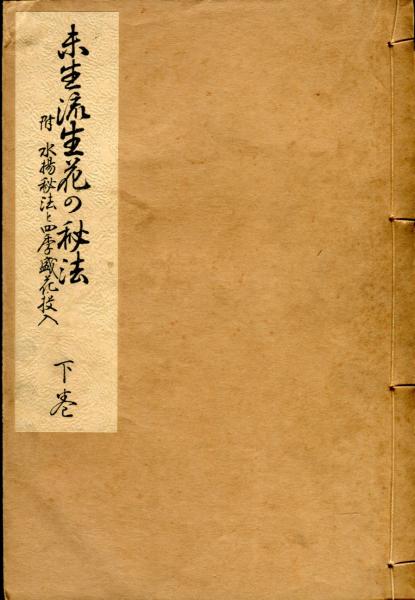 未生流生花の秘法
附 水揚秘法と四季盛花投入
下巻